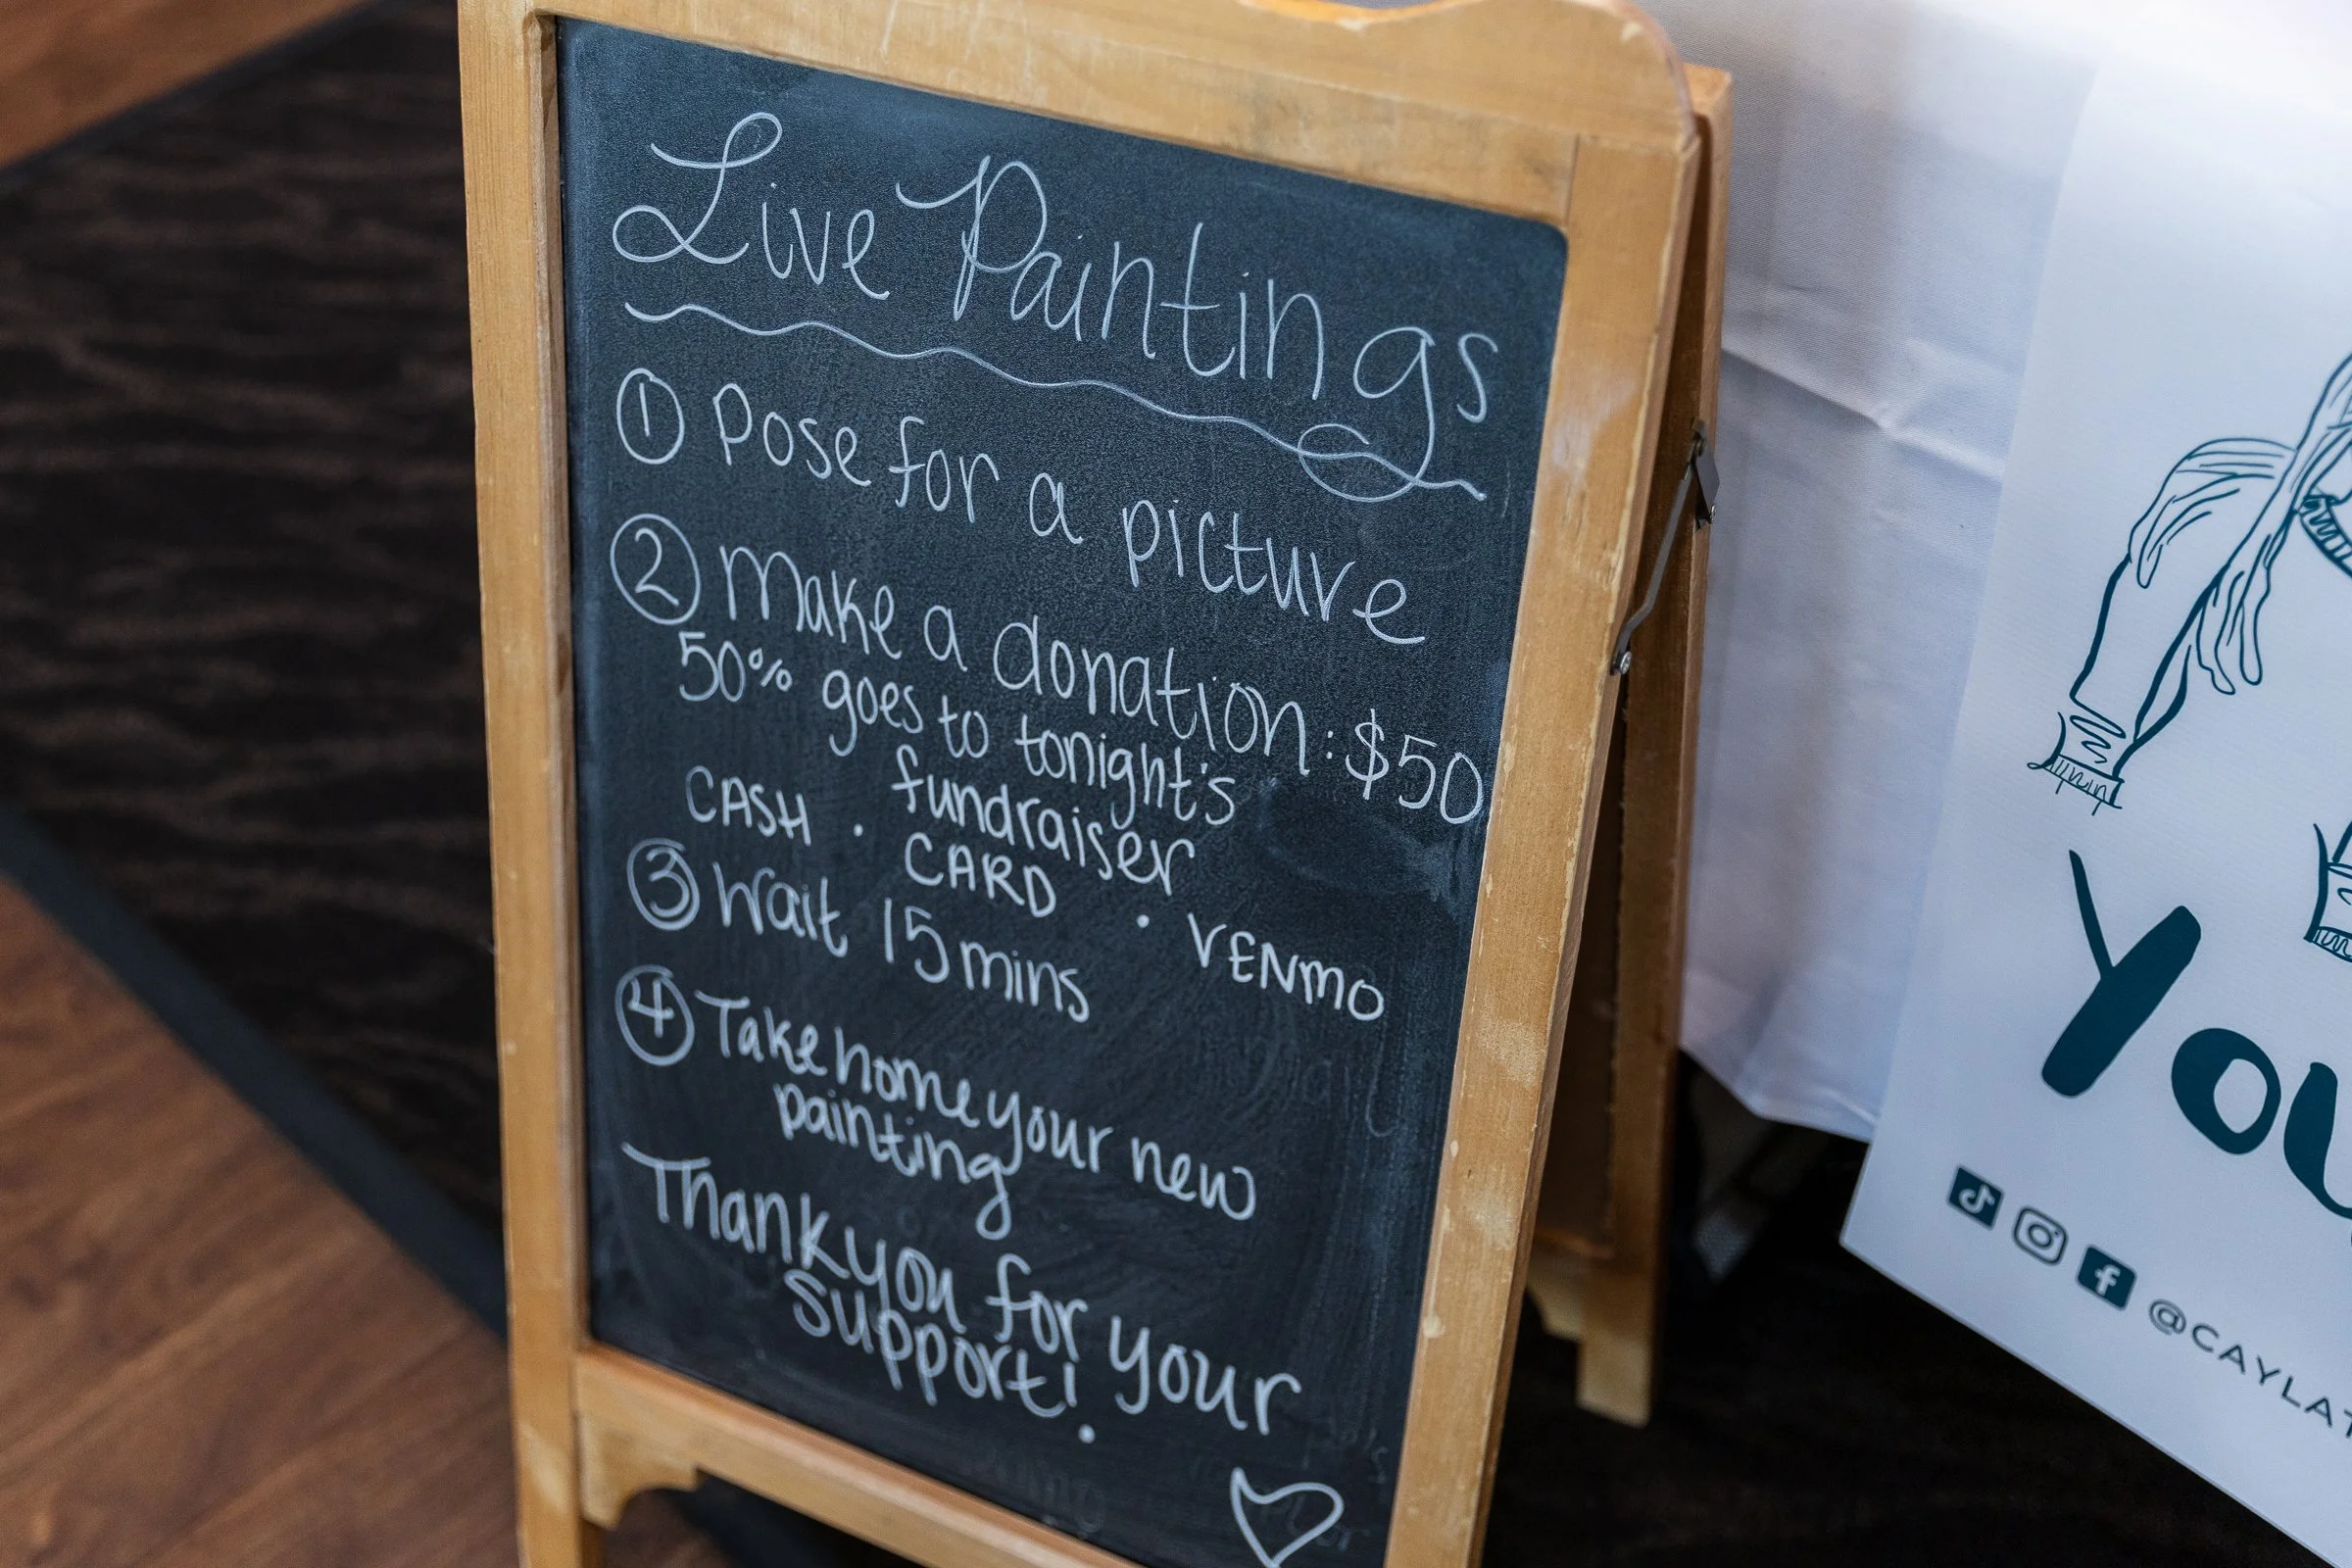 Live Paintings
1 Pose for a picture
2 Make a donation: $50
50% goes to tonight's
fundraiser
CASH · CARD · VENMO
3 Wait 15 mins
4 Take home your new
painting
Thank you for your
support!
You
@CAYLAT